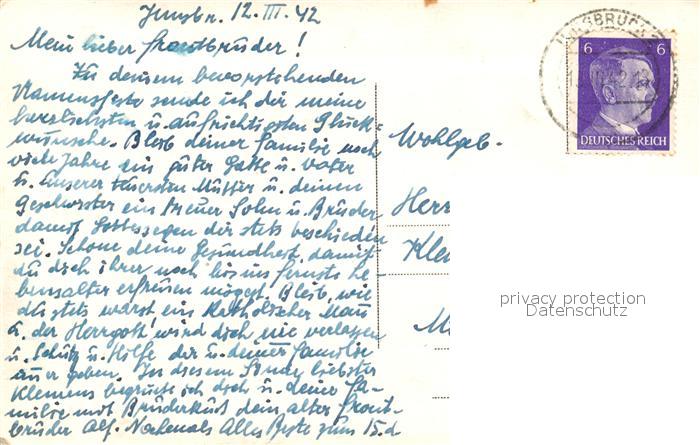 Innsbr. 12. III. 42
Mein lieber Frontbruder!
Zu deinem bevorstehenden
Namensfeste sende ich dir meine
herzlichsten u. aufrichtigsten Glück-
wünsche. Bleib deiner Familie noch
viele Jahre ein guter Gatte u. Vater
u. unserer teuersten Mutter u. deinen
Geschwister ein treuer Sohn u. Bruder
damit Gottessegen dir stets beschieden
sei. Schone deine Gesundheit, damit
du dich ihrer noch bis ins fernste Le-
bensalter erfreuen mögest. Bleib, wie
du stets warst, ein katholischer Mann
u. der Herrgott wird dich nie verlassen
u. Schutz u. Hilfe dir u. deiner Familie
geben. In diesem Sinne liebster
Klemens begrüße ich dich u. deine Fa-
milie mit Bruderkuß dein alter Front-
bruder Alf. Nochmals Alles Beste zum 15. d
Wohlgeb.
Herr
Kle
M
INNSBRUCK
6 6
DEUTSCHES REICH
privacy protection
Datenschutz